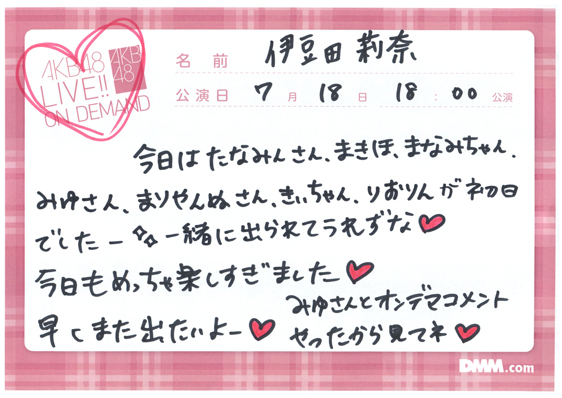 AKB48
LIVE!!
ON DEMAND
AKB
48
名前 伊豆田莉奈
公演日 7月18日 18:00公演
今日はたなみんさん、まきほ、まなみちゃん、
みゆさん、まりやんぬさん、きぃちゃん、りおりんが初日
でしたー 一緒に出られてうれずな♥
今日もめっちゃ楽しすぎました♥
早くまた出たいよー♥
みゆさんとオンデマコメント
やったから見てネ♥
DMM.com